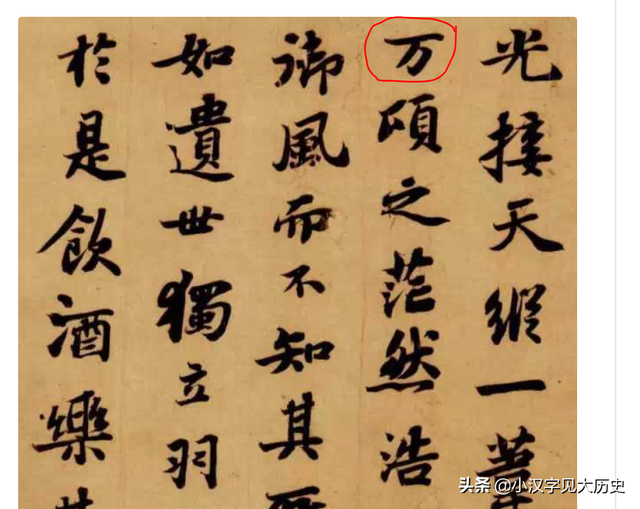 光接天縱一葦
万頃之茫然浩
御風而不知其所
如遺世獨立羽
於是飲酒樂甚
头条 @小汉字见大历史